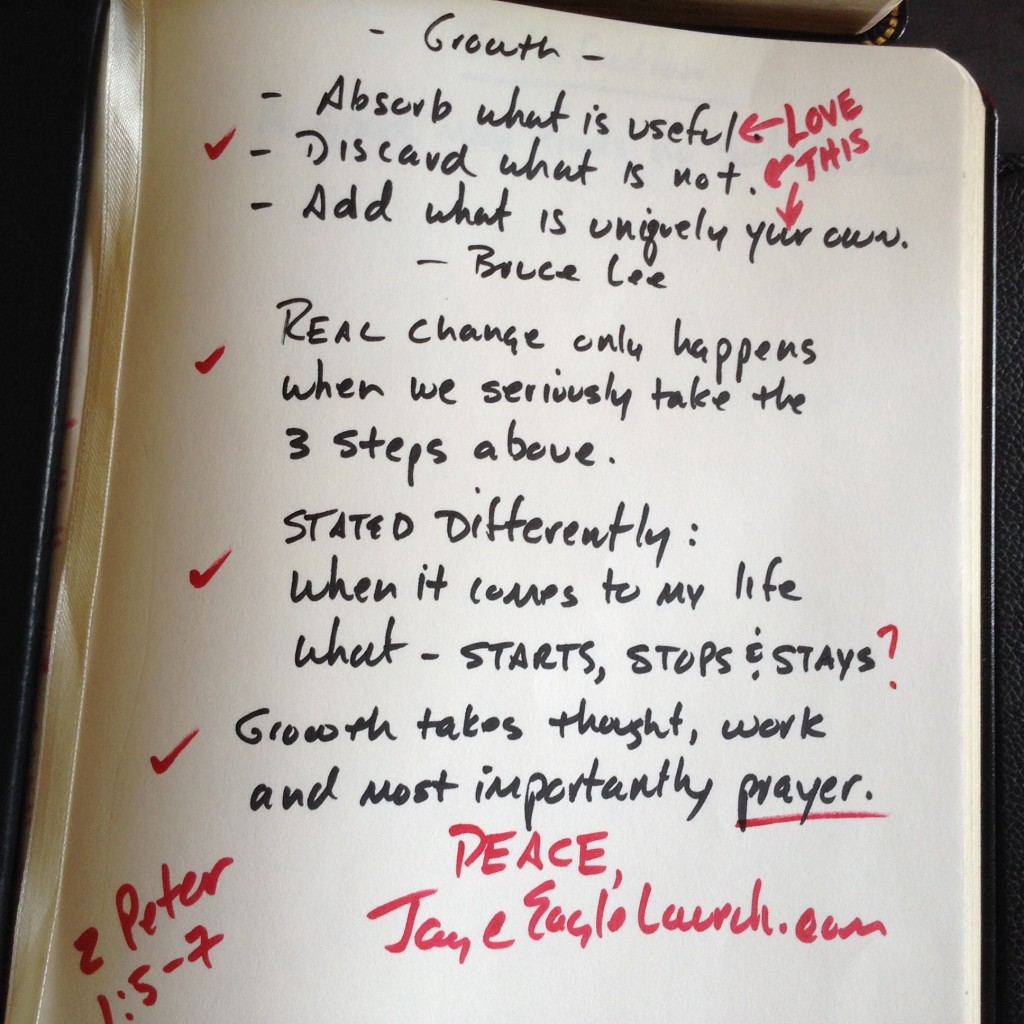 - Growth -
- Absorb what is useful. ← LOVE
- Discard what is not. ← THIS
- Add what is uniquely your own.
- Bruce Lee
REAL change only happens
when we seriously take the
3 steps above.
STATED Differently:
when it comes to my life
what - STARTS, STOPS & STAYS?
Growth takes thought, work
and most importantly prayer.
PEACE,
2 Peter
1:5-7